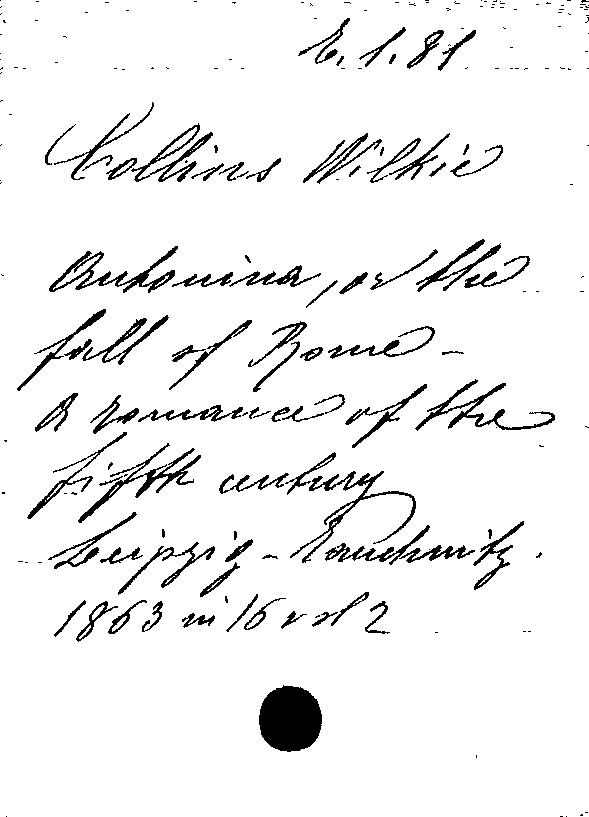 E.1.81
Collins Wilkie
Antonina, or the
fall of Rome -
A romance of the
fifth century
Leipzig - Tauchnitz.
1863 in 16 vol 2